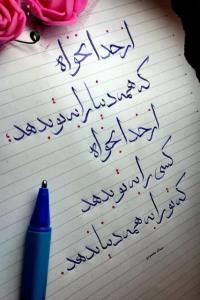 از خدا نخواه
که همه دنیا را به تو بدهد.
از خدا بخواه
کسی را به تو بدهد
که تو را به همه دنیا ندهد.